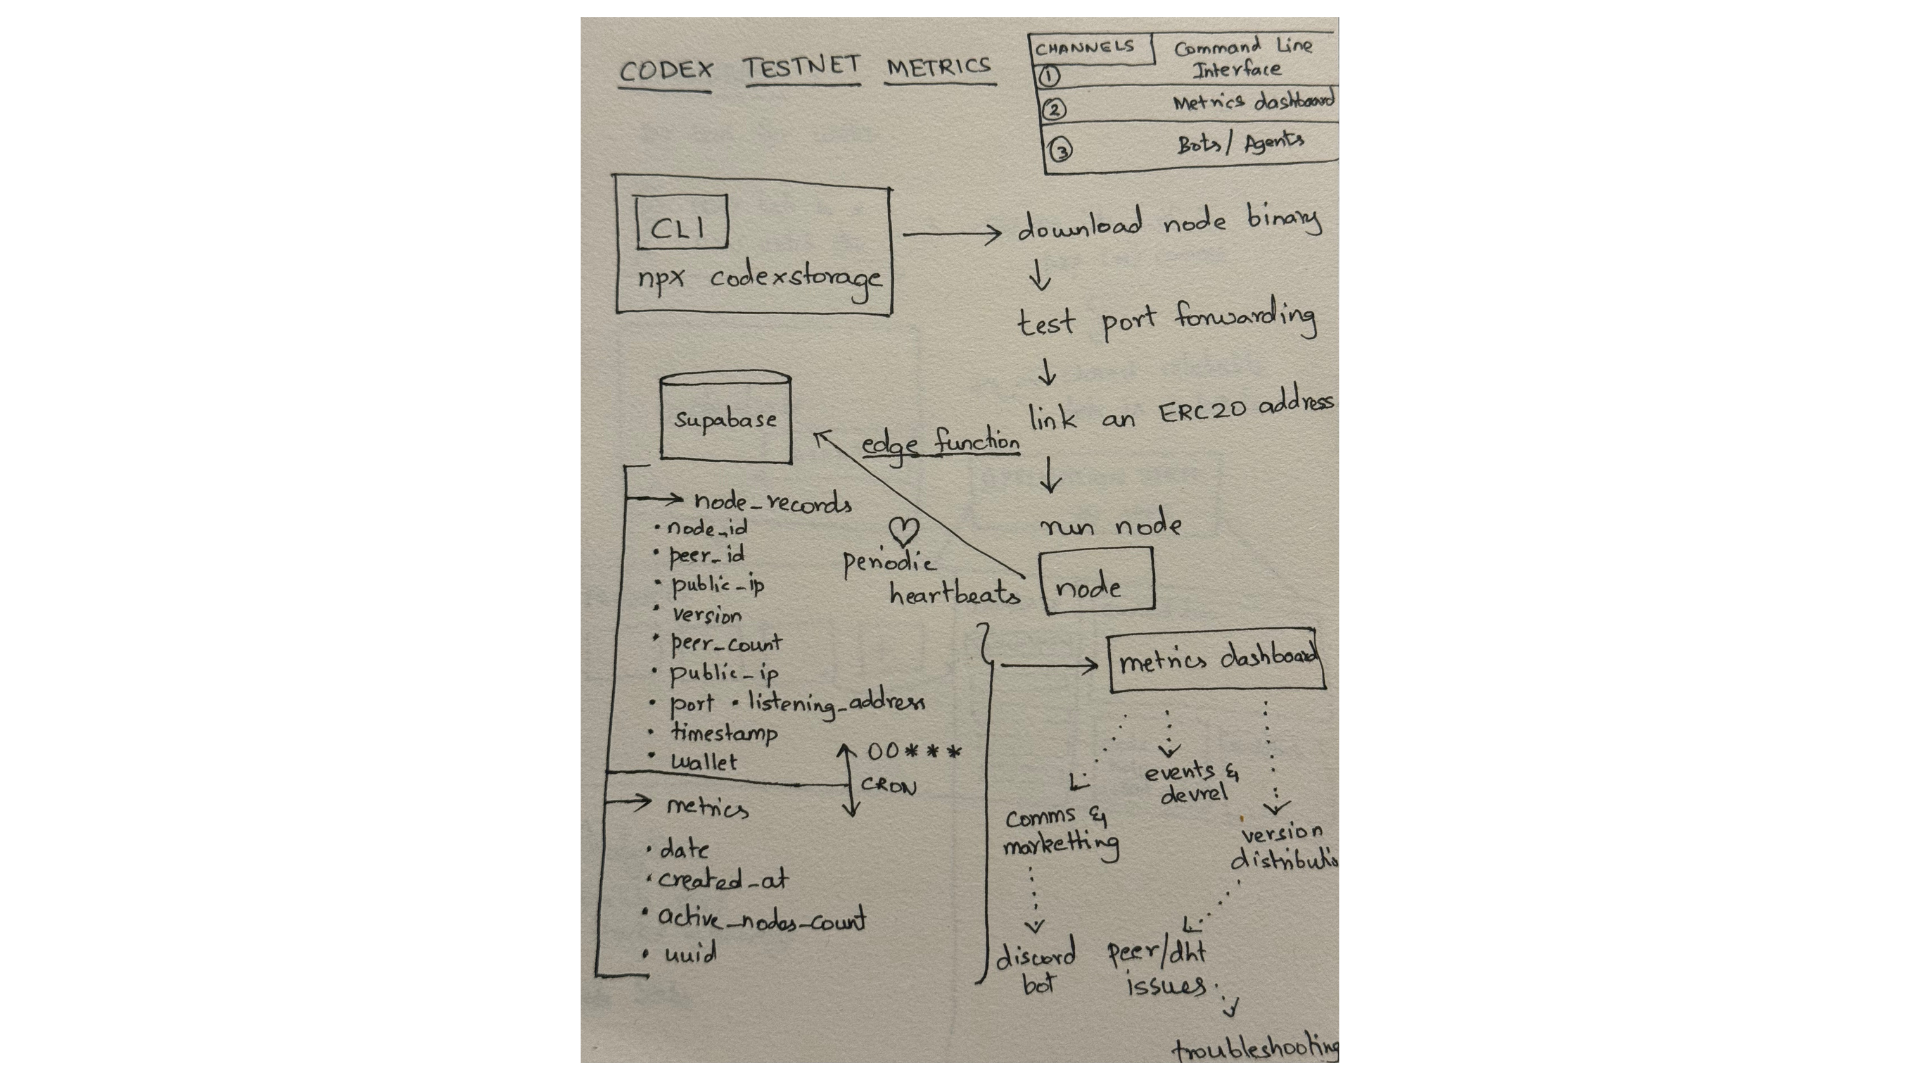 CODEX TESTNET METRICS
CHANNELS
① Command Line
Interface
② Metrics dashboard
③ Bots/Agents
CLI
npx codexstorage
download node binary
test port forwarding
link an ERC20 address
run node
node
edge function
periodic
heartbeats
supabase
node_records
• node_id
• peer_id
• public_ip
• version
• peer_count
• public_ip
• port • listening_address
• timestamp
• wallet
00***
CRON
metrics
• date
• created_at
• active_nodes_count
• uuid
metrics dashboard
comms &
marketting
events &
devrel
version
distributio
discord
bot
peer/dht
issues
troubleshooting